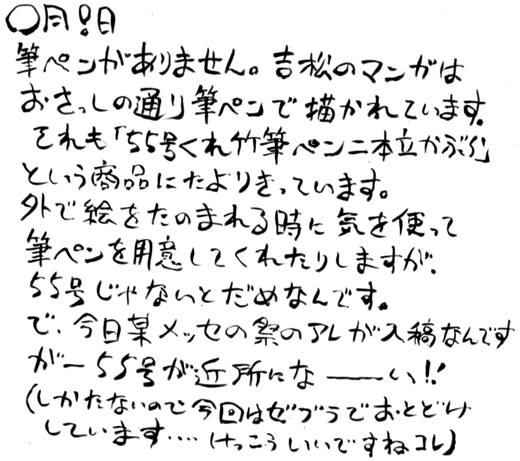 〇月8日
筆ペンがありません。吉松のマンガは
おさっしの通り筆ペンで描かれています。
それも「55号くれ竹筆ペン二本立かぶら」
という商品にたよりきっています。
外で絵をたのまれる時に気を使って
筆ペンを用意してくれたりしますが、
55号じゃないとだめなんです。
で、今日某メッセの祭のアレが入稿なんです
がー55号が近所にな――い!!
(しかたないので今回はゼブラでおとどけ
しています‥‥けっこういいですねコレ)